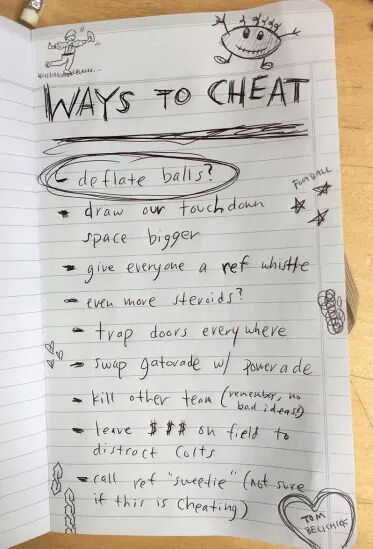 WAYS TO CHEAT
- deflate balls?
FOOTBALL
- draw our touchdown
space bigger
- give everyone a ref whistle
- even more steroids?
- trap doors everywhere
- swap gatorade w/ powerade
- kill other team (remember, no
bad ideas!)
- leave $$$ on field to
distract Colts
- call ref "sweetie" (not sure
if this is cheating)
TOM